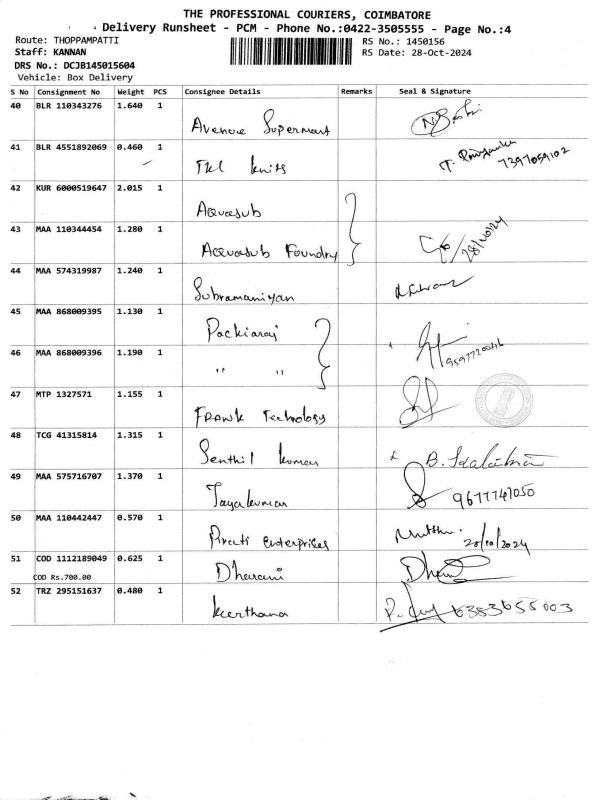 THE PROFESSIONAL COURIERS, COIMBATORE
Delivery Runsheet - PCM - Phone No.:0422-3505555 - Page No.:4
Route: THOPPAMPATTI
RS No.: 1450156
Staff: KANNAN
RS Date: 28-Oct-2024
DRS No.: DCJB145015604
Vehicle: Box Delivery
S No Consignment No Weight PCS Consignee Details Remarks Seal & Signature
40 BLR 110343276 1.640 1 Avenue Supermart
41 BLR 4551892069 0.460 1 Tkl knits 7397059102
42 KUR 6000519647 2.015 1 Aquasub
43 MAA 110344454 1.280 1 Aquasub Foundry 28/10/24
44 MAA 574319987 1.240 1 Subramaniyan
45 MAA 868009395 1.130 1 Packiaraj
46 MAA 868009396 1.190 1 " "
47 MTP 1327571 1.155 1 FRANK Technology
48 TCG 41315814 1.315 1 Senthil kumar
49 MAA 575716707 1.370 1 Jayakumar 9677747050
50 MAA 110442447 0.570 1 Enterprises Muthu. 28/10/2024
51 COD 1112189049 0.625 1 Dharani
COD Rs.700.00
52 TRZ 295151637 0.480 1 keerthana 6383655003